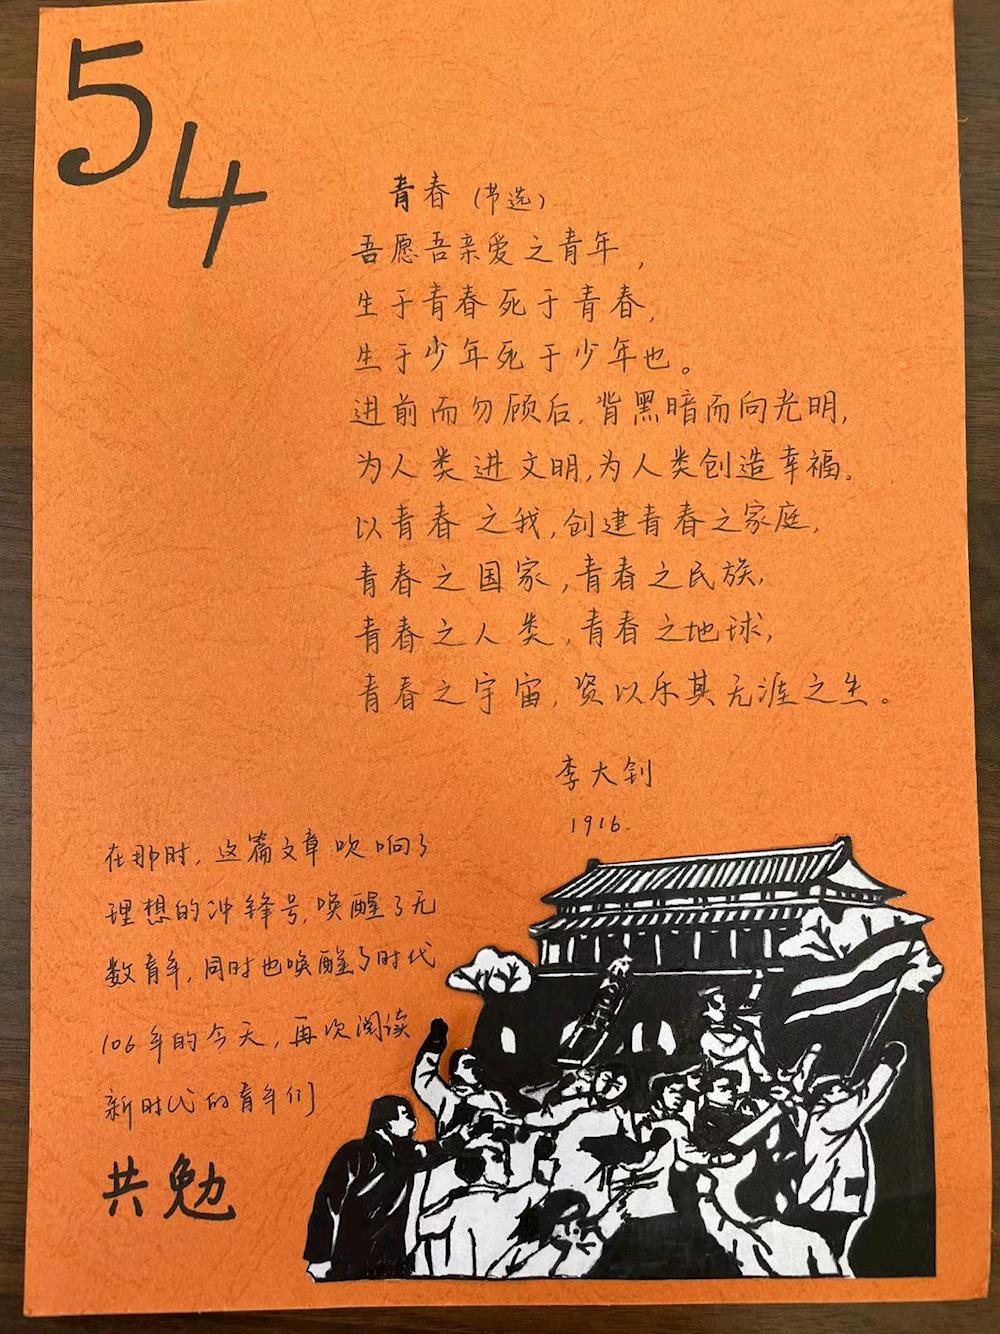 5
4
青春（节选）
吾愿吾亲爱之青年，
生于青春死于青春，
生于少年死于少年也。
进前而勿顾后，背黑暗而向光明，
为人类进文明，为人类创造幸福。
以青春之我，创建青春之家庭，
青春之国家，青春之民族，
青春之人类，青春之地球，
青春之宇宙，资以乐其无涯之生。
李大钊
1916.
在那时，这篇文章吹响了
理想的冲锋号，唤醒了无
数青年，同时也唤醒了时代
106年的今天，再次阅读
新时代的青年们
共勉